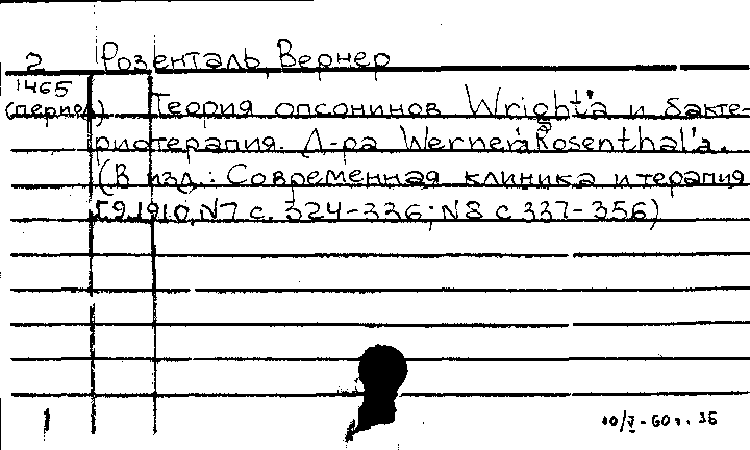 2 Розенталь, Вернер
1465
(период) Теория опсонинов Wright'a и бакте-
риотерапия. Д-ра Werner'a Rosenthal'a.
(В изд.: Современная клиника и терапия
Т.9, 1910, N7 с. 324-336; N8 с 337-356)
1